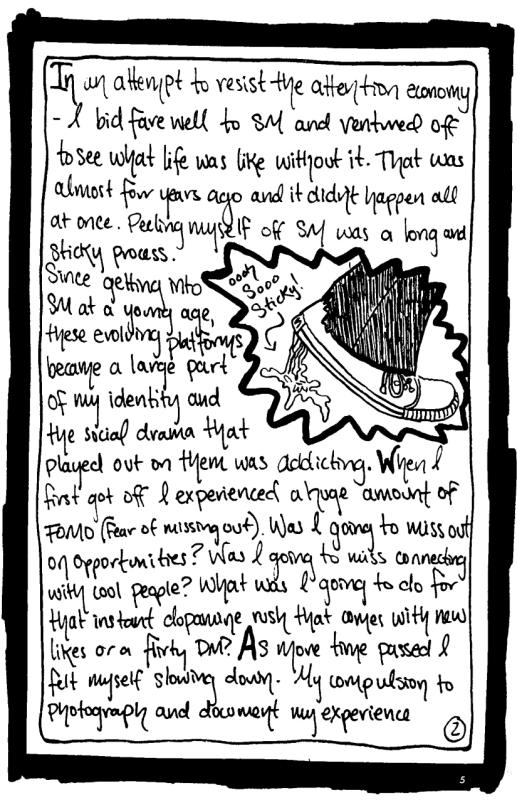 In an attempt to resist the attention economy
- I bid farewell to SM and ventured off
to see what life was like without it. That was
almost four years ago and it didn't happen all
at once. Peeling myself off SM was a long and
sticky process.
Since getting into
SM at a young age,
these evolving platforms
became a large part
of my identity and
the social drama that
played out on them was addicting. When I
first got off I experienced a huge amount of
FOMO (fear of missing out). Was I going to miss out
on opportunities? Was I going to miss connecting
with cool people? What was I going to do for
that instant dopamine rush that comes with new
likes or a flirty DM? As more time passed I
felt myself slowing down. My compulsion to
photograph and document my experience
oooh
Sooo
Sticky!
2
5